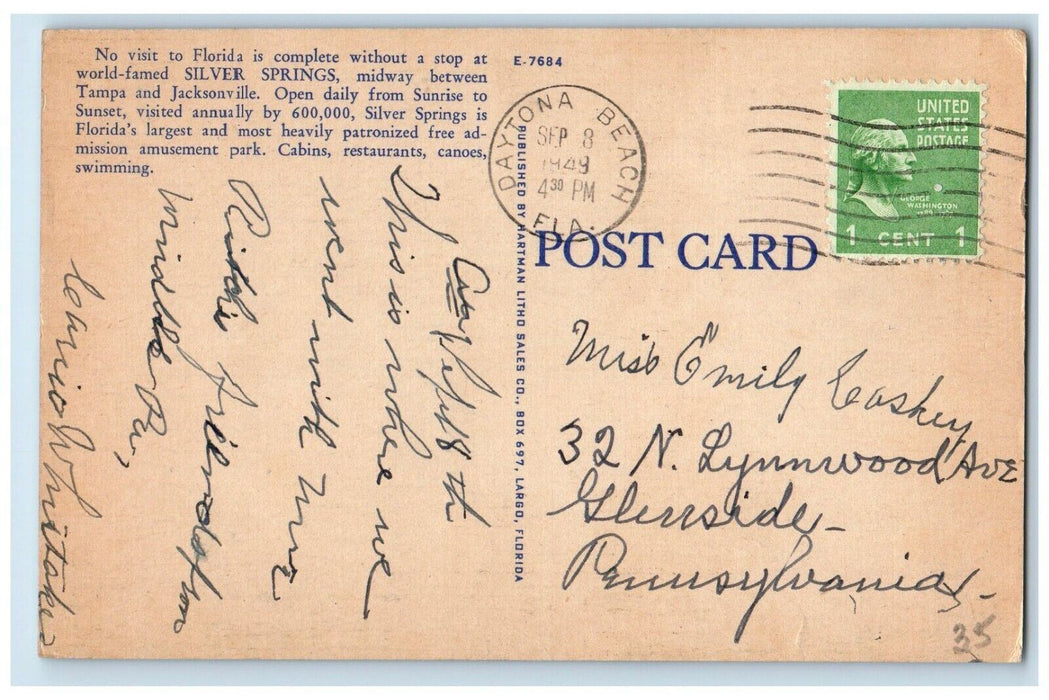 No visit to Florida is complete without a stop at
world-famed SILVER SPRINGS, midway between
Tampa and Jacksonville. Open daily from Sunrise to
Sunset, visited annually by 600,000, Silver Springs is
Florida's largest and most heavily patronized free ad-
mission amusement park. Cabins, restaurants, canoes,
swimming.
Sept 8th
This is where we
went with Mrs
Middle
E-7684
PUBLISHED BY HARTMAN LITHO SALES CO., BOX 697, LARGO, FLORIDA
DAYTONA BEACH
SEP 8
1949
4 30 PM
FLA.
UNITED
STATES
POSTAGE
GEORGE
WASHINGTON
1 CENT 1
POST CARD
Miss Emily Caskey
32 N. Lynnwood Ave
Glenside-
Pennsylvania-
35